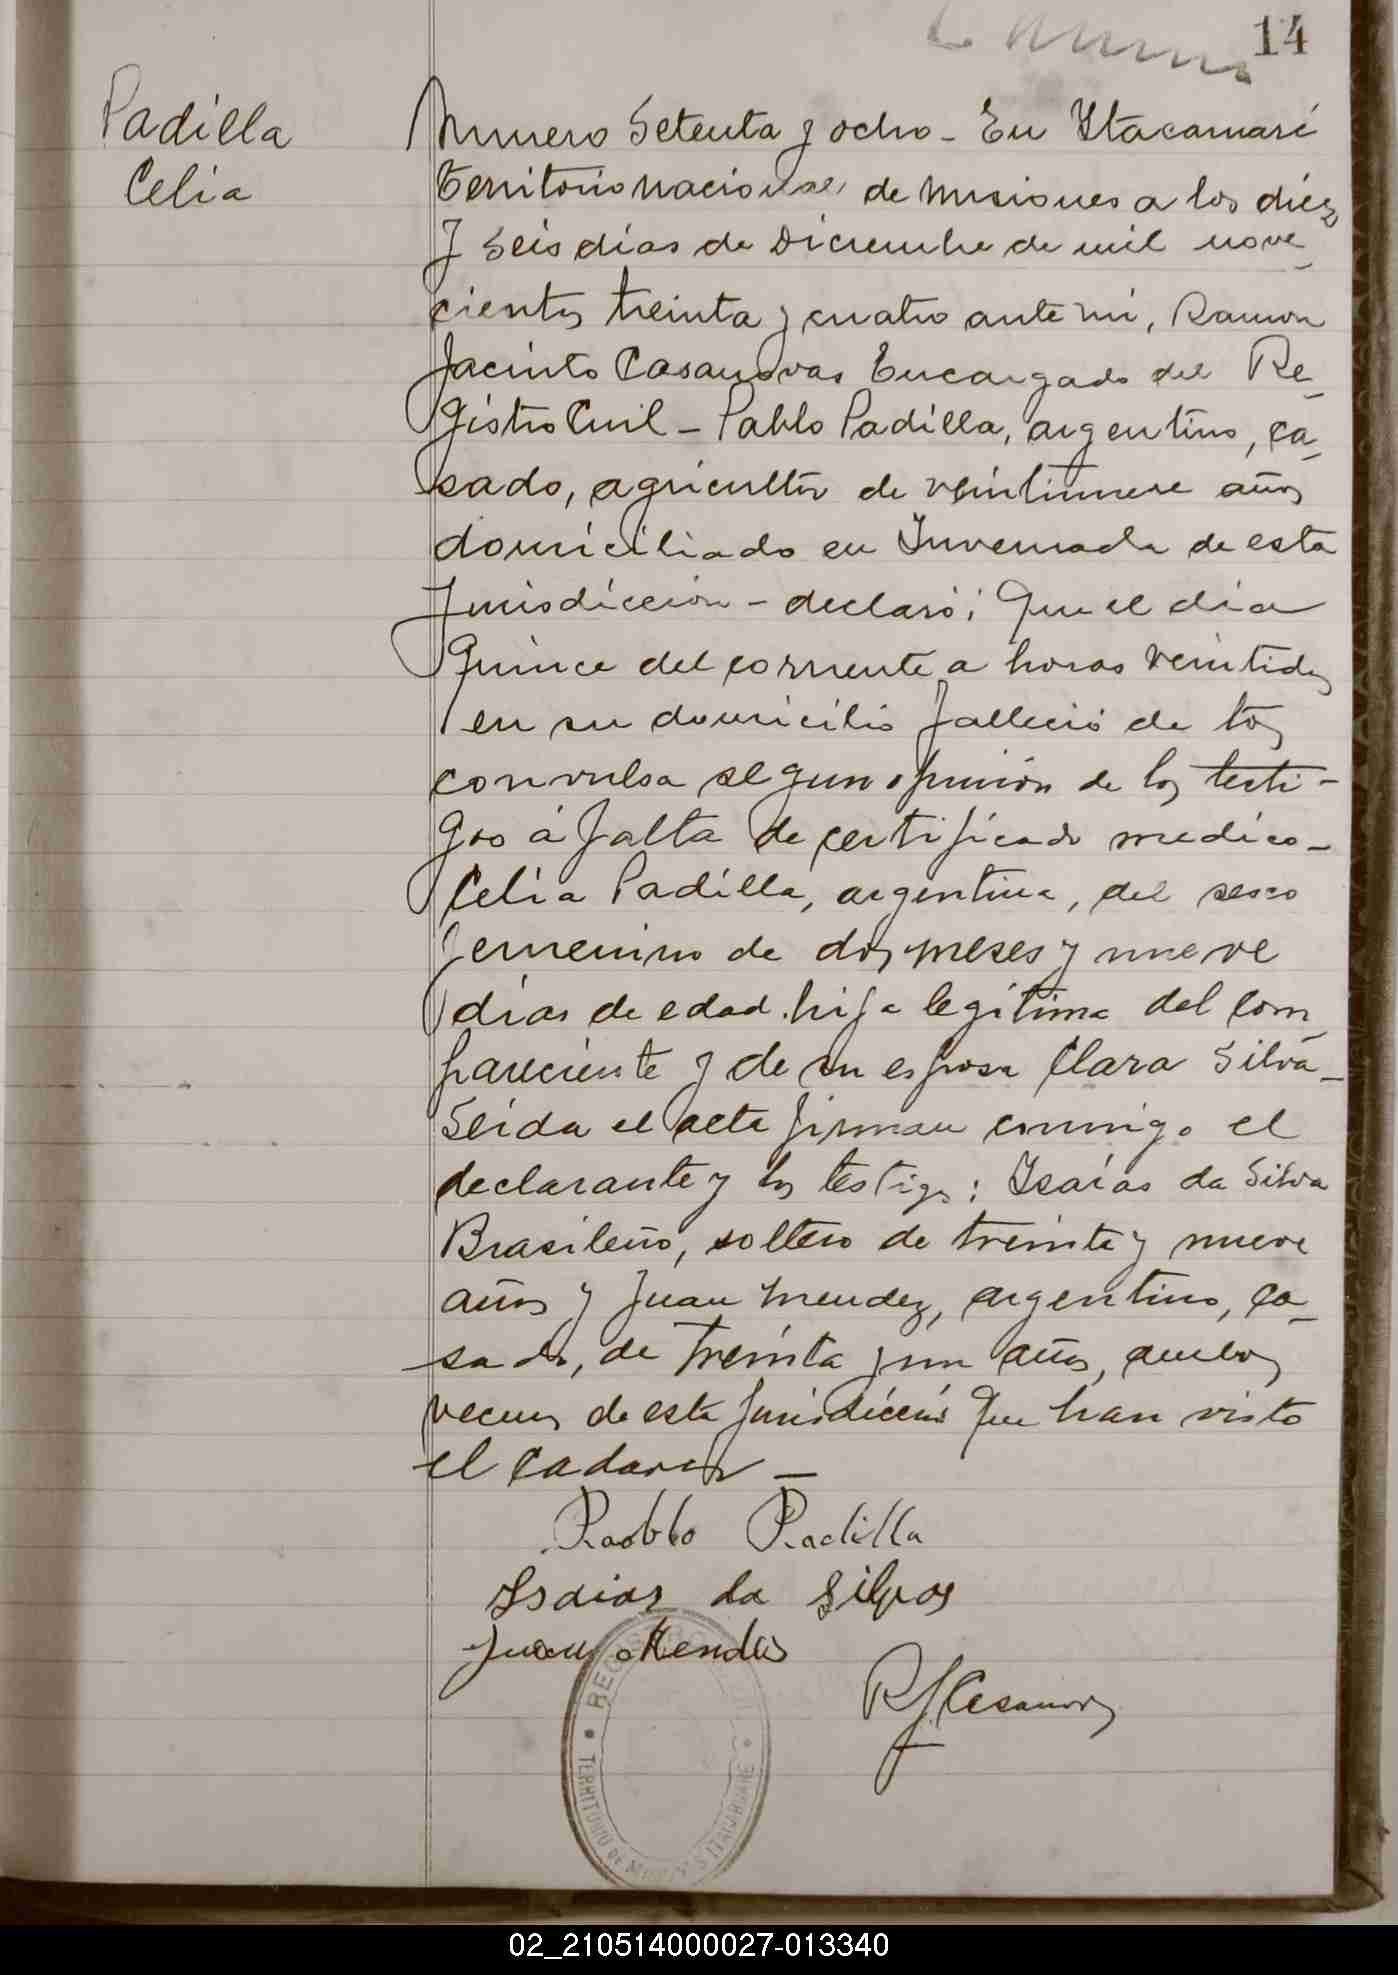 14
Padilla
Celia
Numero Setenta y ocho - En Itacaruaré
territorio nacional de Misiones a los diez
y seis dias de Diciembre de mil nove-
cientos treinta y cuatro ante mi, Ramon
Jacinto Casanovas Encargado del Re-
gistro Civil - Pablo Padilla, argentino, ca-
sado, agricultor de veintinueve años
domiciliado en Invernada de esta
Jurisdiccion - declaró: Que el dia
quince del corriente a horas veintidos
en su domicilio falleció de tos
convulsa segun opinión de los testi-
gos á falta de certificado medico -
Celia Padilla, argentina, del sexo
femenino de dos meses y nueve
dias de edad. hija legítima del com-
pareciente y de su esposa Clara Silva -
Leida el acta firman conmigo el
declarante y los testigos: Isaías da Silva
Brasileño, soltero de treinta y nueve
años y Juan Mendez, argentino, ca-
sado, de treinta y un años, ambos
vecinos de esta jurisdicción que han visto
el cadaver -
Pablo Padilla
Isaias da Silva
Juan Mendes
RJCasanovas
REGISTRO
TERRITORIO DE MISIONES ITACARUARE
02_210514000027-013340